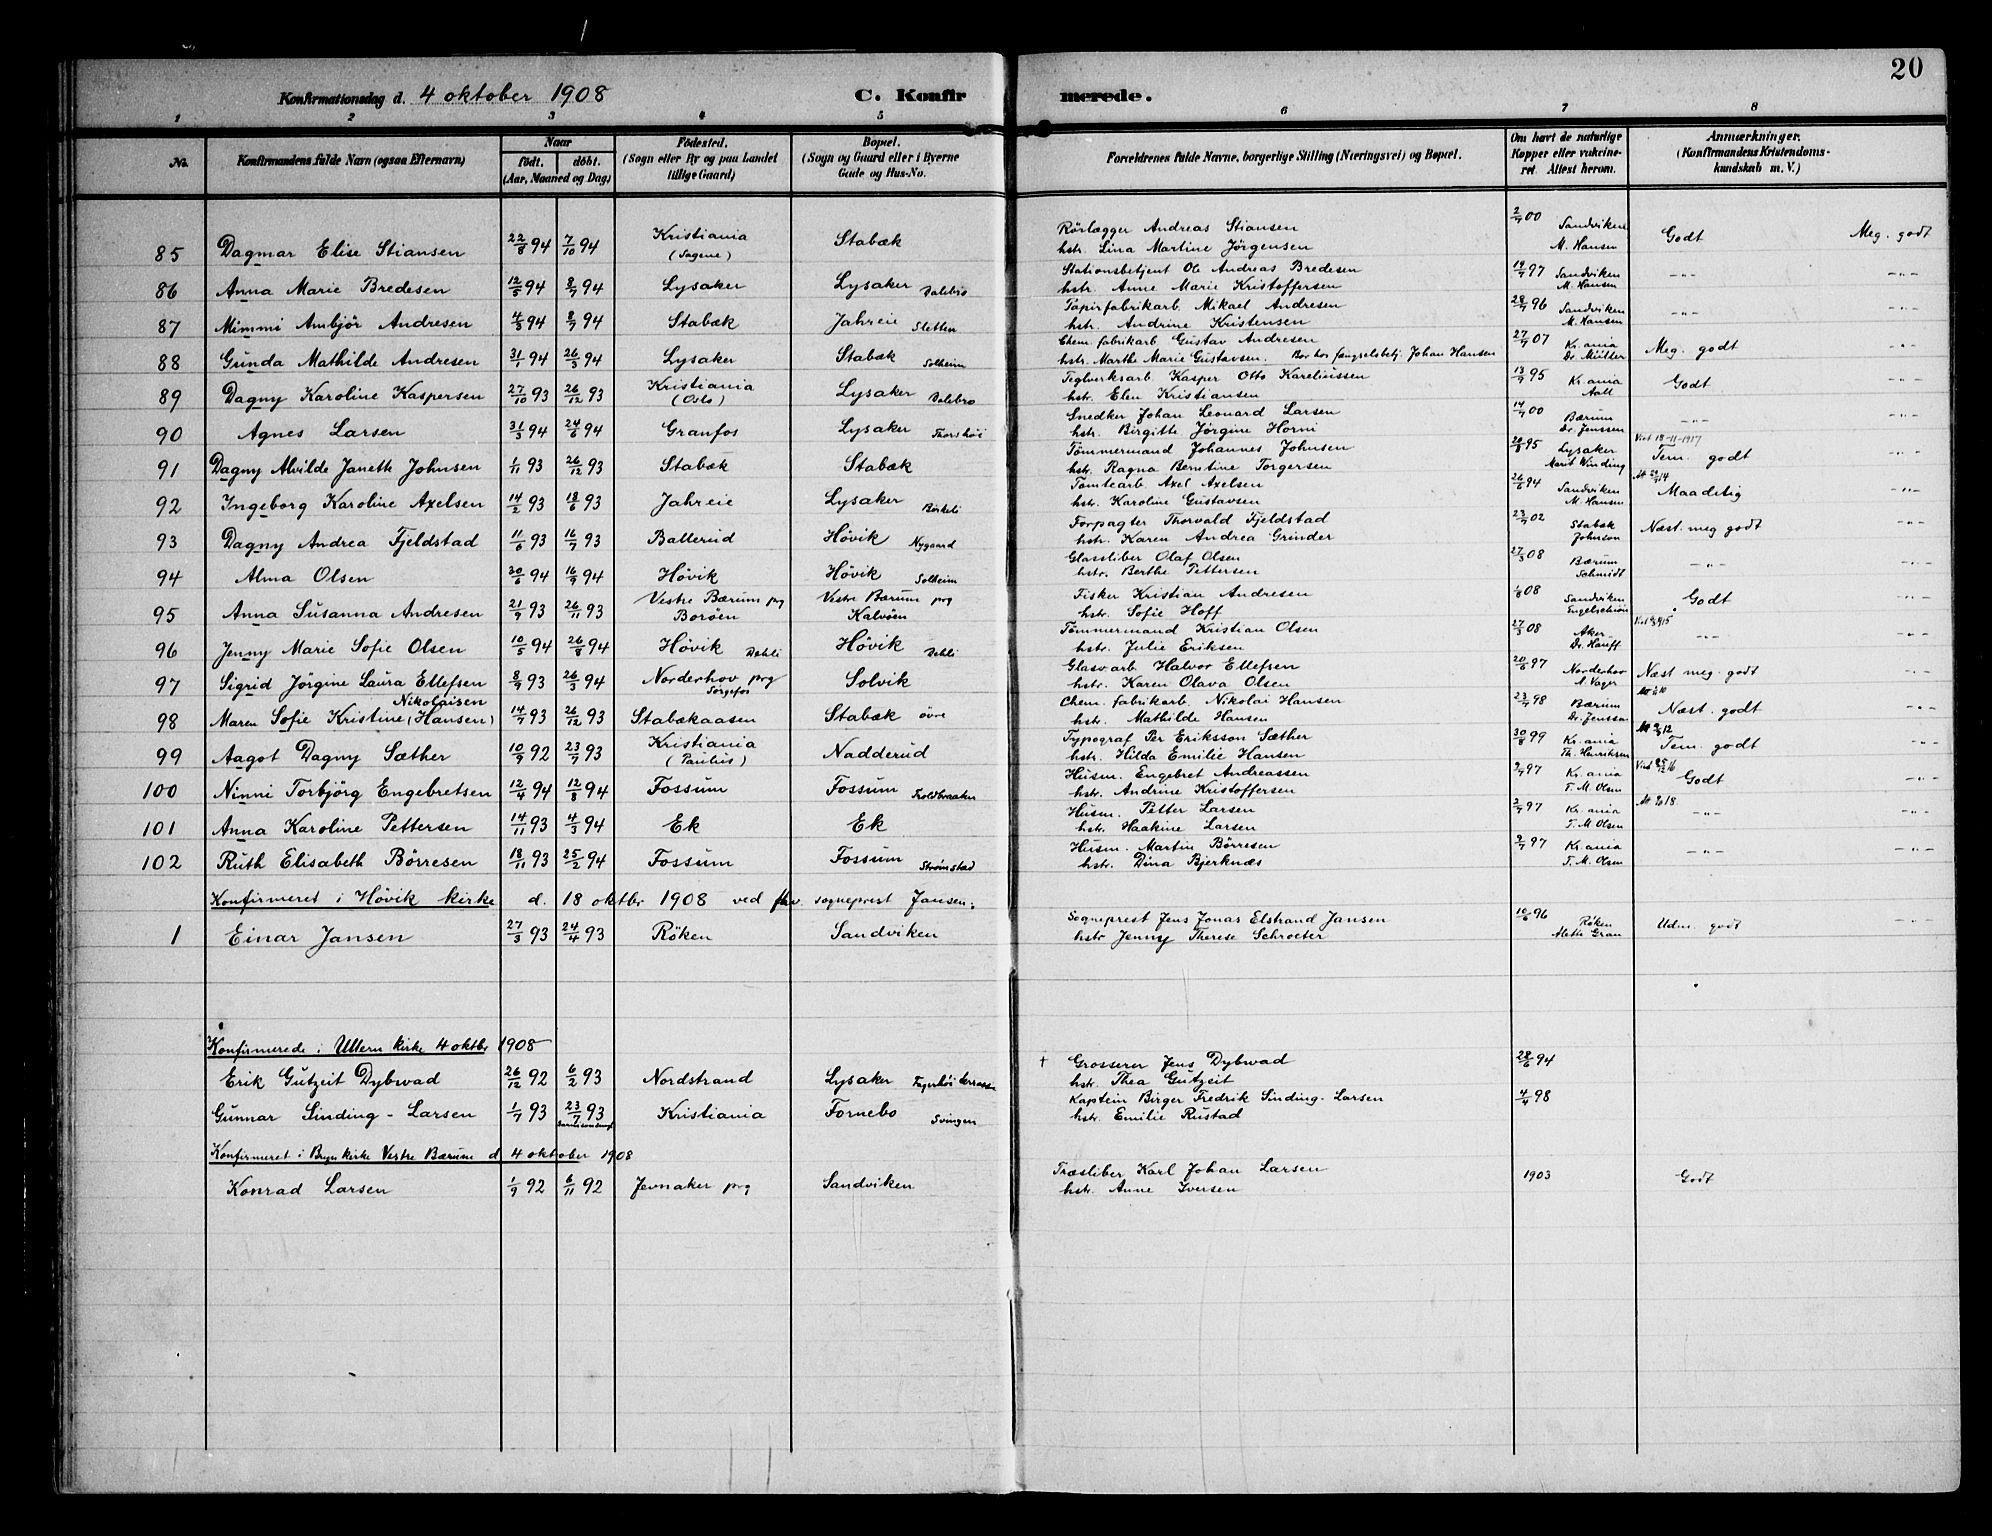 20
Konfirmationsdag d. 4 oktober 1908 C. Konfir merede.
1 2 3 4 5 6 7 8
No. Konfirmandens fulde Navn (ogsaa Efternavn) Naar født. døbt. (Aar, Maaned og Dag) Fødested. (Sogn eller By og paa Landet tillige Gaard) Bopæl. (Sogn og Gaard eller i Byerne Gade og Hus-No. Forældrenes fulde Navne, borgerlige Stilling (Næringsvei) og Bopæl. Om havt de naturlige Kopper eller vakcineret. Attest herom. Anmærkninger. (Konfirmandens Kristendomskundskab m. V.)
85 Dagmar Elise Stiansen 22/8 94 7/10 94 Kristiania (Sagene) Stabæk Rörlægger Andreas Stiansen hstr. Lina Martine Jörgensen 2/7 00 Sandviken M. Hansen Godt Meg. godt
86 Anna Marie Bredesen 12/5 94 8/7 94 Lysaker Lysaker Dalebro Stationsbetjent Ole Andreas Bredesen hstr. Anne Marie Kristoffersen 19/7 97 Sandviken M. Hansen -"- -"-
87 Mimmi Ambjör Andresen 4/3 94 8/7 94 Stabæk Jahreie Sletten Papirfabrikarb. Mikael Andresen hstr. Andrine Kristensen 28/7 96 Sandviken M. Hansen -"- -"-
88 Gunda Mathilde Andresen 31/1 94 26/3 94 Lysaker Stabæk Solheim Chem. fabrikarb Gustav Andresen hstr. Marthe Marie Gustavsen. Bor hos fængselsbetj. Johan Hansen 27/7 07 Kr.ania Dr. Müller Meg. godt -"-
89 Dagny Karoline Kaspersen 27/10 93 26/12 93 Kristiania (Oslo) Lysaker Dalebro Teglverksarb Kasper Otto Kareliussen hstr. Elen Kristiansen 13/9 95 Kr.ania Aall Godt -"-
90 Agnes Larsen 31/3 94 24/6 94 Granfos Lysaker Thorshöi Snedker Johan Leonard Larsen hstr. Birgitte Jörgine Horni 14/7 00 Bærum Dr. Jenssen -"- -"-
91 Dagny Alvilde Janette Johnsen 1/11 93 26/12 93 Stabæk Stabæk Tömmermand Johannes Johnsen hstr. Ragna Berntine Torgersen 20/8 95 Lysaker Marit Winding Viet 18-11-1917 Tem. godt -"-
92 Ingeborg Karoline Axelsen 14/2 93 18/6 93 Jahreie Lysaker Birkeli Tomtearb Axel Axelsen hstr. Karoline Gustavsen 26/6 94 Sandviken M. Hansen Maadelig -"-
93 Dagny Andrea Fjeldstad 11/6 93 16/7 93 Ballerud Hövik Nygaard Forpagter Thorvald Fjeldstad hstr. Karen Andrea Grinder 23/7 02 Stabæk Johnson Næst. meg godt -"-
94 Alma Olsen 30/6 94 16/9 94 Hövik Hövik Solheim Glassliber Olaf Olsen hstr. Berthe Pettersen 27/3 08 Bærum Schmidt -"- -"-
95 Anna Susanna Andresen 21/9 93 26/11 93 Vestre Bærum prg Boröen Vestre Bærum prg Kalvöen Fisker Kristian Andresen hstr. Sofie Hoff 1/8 08 Sandviken Engelschiön Godt -"-
96 Jenny Marie Sofie Olsen 10/5 94 26/8 94 Hövik Dehli Hövik Dehli Tömmermand Kristian Olsen hstr. Julie Eriksen 27/3 08 Aker Dr. Hauff -"- -"-
97 Sigrid Jörgine Laura Ellefsen 8/9 93 26/3 94 Norderhov prg Sörgefos Solvik Glasvarb Halvor Ellefsen hstr. Karen Olava Olsen 20/6 97 Norderhov A. Vager Næst meg. godt -"-
98 Maren Sofie Kristine Nikolaisen (Hansen) 14/7 93 26/12 93 Stabækaasen Stabæk övre Chem. fabrikarb. Nikolai Hansen hstr. Mathilde Hansen 23/7 98 Bærum Dr. Jenssen Næst. godt -"-
99 Aagot Dagny Sæther 10/9 92 23/7 93 Kristiania (Paulus) Nadderud Typograf Per Eriksson Sæther hstr. Hilda Emilie Hansen 30/8 99 Kr.ania Th. Henriksen Tem. godt -"-
100 Ninni Torbjörg Engebretsen 12/4 94 12/8 94 Fossum Fossum Koldbraaten Husm. Engebret Andreassen hstr. Andrine Kristoffersen 2/7 97 Kr.ania T. M. Olsen Godt -"-
101 Anna Karoline Pettersen 14/11 93 4/3 94 Ek Ek Husm. Petter Larsen hstr. Haakine Larsen 2/7 97 Kr.ania T. M. Olsen -"- -"-
102 Ruth Elisabeth Börresen 18/11 93 25/2 94 Fossum Fossum Strømstad Husm. Martin Börresen hstr. Dina Bjerknæs 2/7 97 Kr.ania T. M. Olsen -"- -"-
Konfirmeret i Hövik kirke d. 18 oktbr 1908 ved sogneprest Jansen.
1 Einar Jansen 27/3 93 24/4 93 Röken Sandviken Sogneprest Jens Jonas Elstrand Jansen hstr. Jenny Therese Schroeter 10/6 96 Röken Alette Gran Udm. godt -"-
Konfirmerede i Ullern kirke 4 oktbr 1908
Erik Gutzeit Dybwad 26/12 92 6/2 93 Nordstrand Lysaker Fagerhöi terrasse † Grosserer Jens Dybwad hstr. Thea Gutzeit 28/6 94
Gunnar Sinding-Larsen 1/7 93 23/7 93 Kristiania Fornebo Svingen Kaptein Birger Fredrik Sinding-Larsen hstr. Emilie Rustad 4/4 98
Konfirmeret i Bryn kirke Vestre Bærum d 4 oktober 1908
Konrad Larsen 1/9 92 6/11 92 Jevnaker prg Sandviken Træsliber Karl Johan Larsen hstr. Anne Iversen 1903 Godt